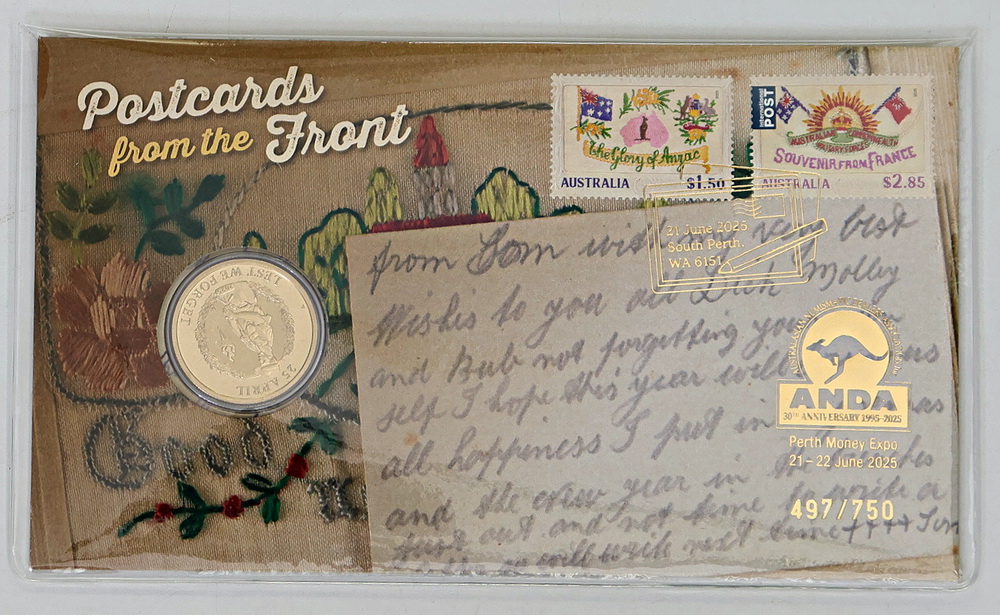 Postcards
from the Front
The Glory of Anzac
AUSTRALIA $1.50
International
POST
AUSTRALIAN COMMONWEALTH
MILITARY FORCES
SOUVENIR FROM FRANCE
AUSTRALIA $2.85
21 June 2025
South Perth
WA 6151
LEST WE FORGET
25 APRIL
Good
from Tom with best
Wishes to you all Molly
and Bub not forgetting
self I hope this year will
all happiness I put in
and the New year in
and not time to write a
will write next time ++++ Tom
ANDA
30TH ANNIVERSARY 1995-2025
Perth Money Expo
21 – 22 June 2025
497/750